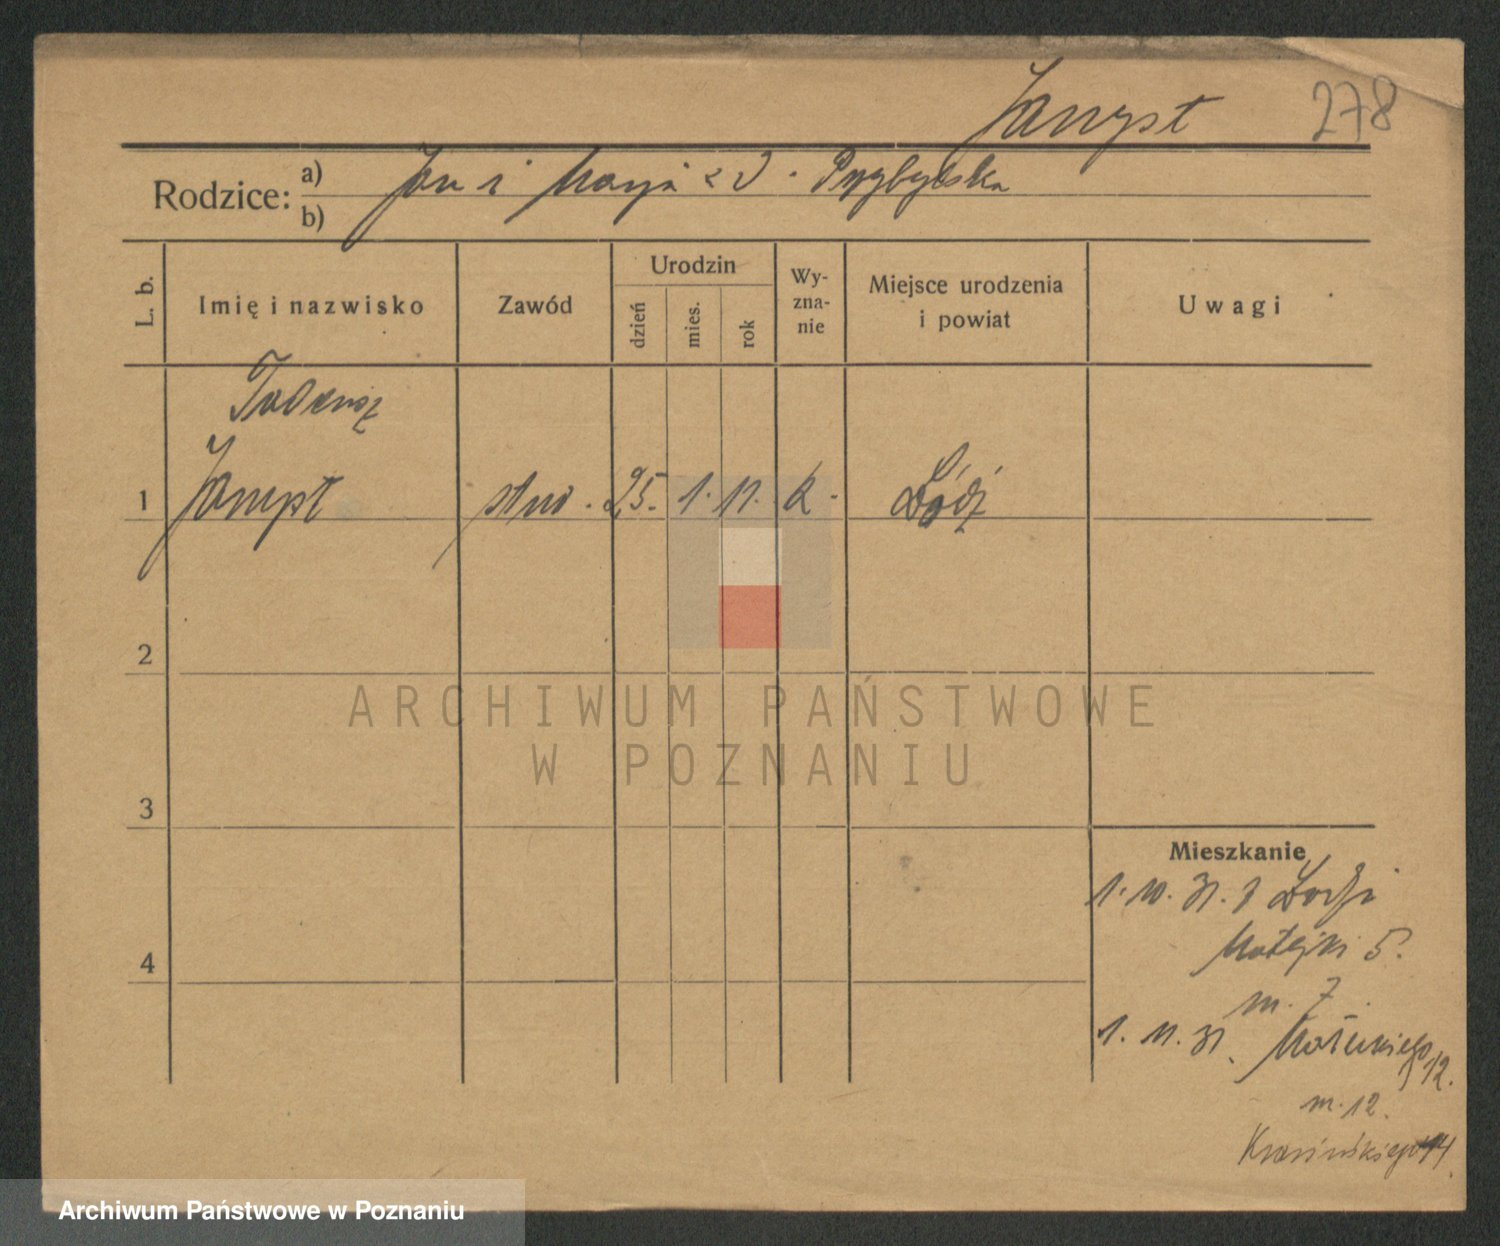 Jampst 278
Rodzice: a) Jan i Marja z d. Przybylska
b)
L. b. Imię i nazwisko Zawód Urodzin dzień mies. rok Wy-zna-nie Miejsce urodzenia i powiat Uwagi
Tadeusz
1 Jampst stud. 25. 1. 11. k. Łódź
2
3
Mieszkanie
1. 10. 31. z Łodzi
4 Matejki 5.
m. 7
1. 11. 31. Małeckiego 12.
m. 12.
Krasińskiego 14.
ARCHIWUM PAŃSTWOWE
W POZNANIU
Archiwum Państwowe w Poznaniu